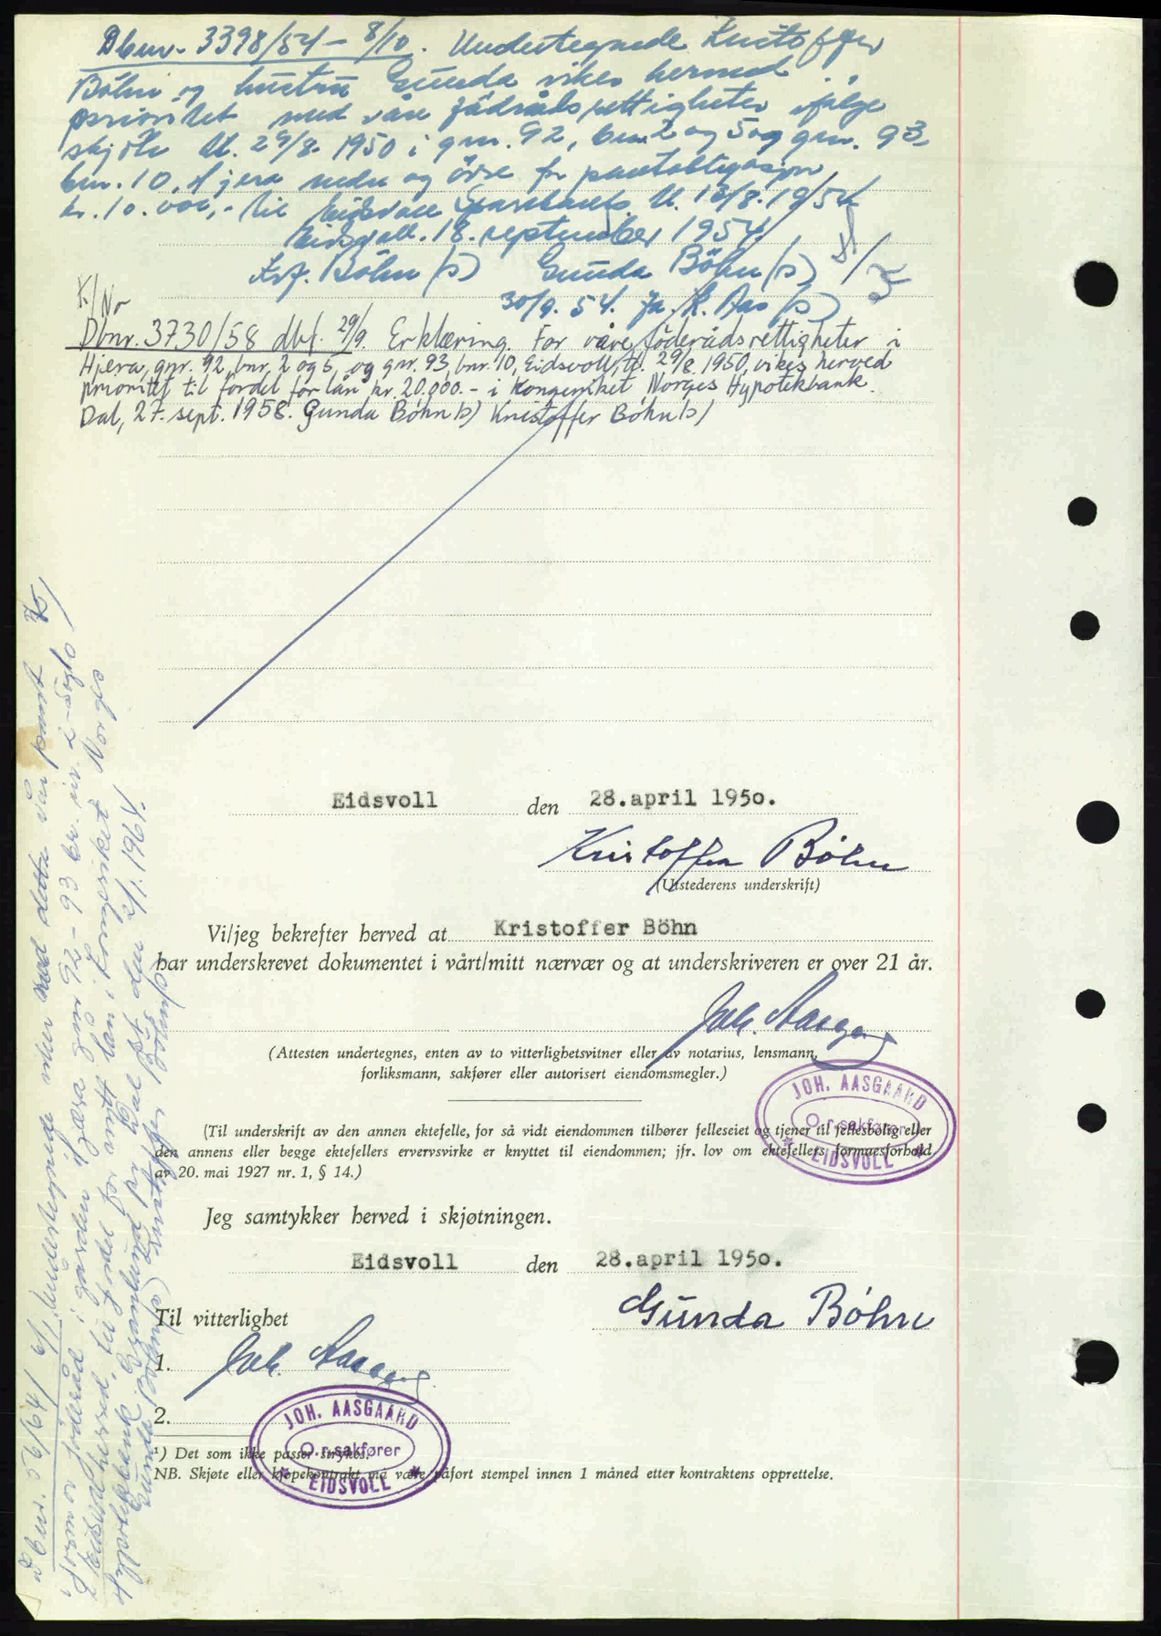 Dbnr. 3398/54 - 8/10. Undertegnede Kristoffer
Böhn og hustru Gunda viker hermed
prioritet med våre födrådsrettigheter ifölge
skjöte dt. 29/8. 1950 i gnr. 92, bnr. 2 og 5 og gnr. 93,
bnr. 10, Hjera nedre og övre for pantobligasjon
kr. 10.000,- til Eidsvoll Sparebank dt. 18/8.1954
Eidsvoll. 18. september 1954
Krf. Böhn (s) Gunda Böhn (s)
30/9. 54. Ja. K. Aas (s)
K/No
Dbnr. 3730/58 dbf. 29/9. Erklæring. For våre föderådsrettigheter i
Hjera, gnr. 92, bnr. 2 og 5, og gnr. 93, bnr. 10, Eidsvoll, dt. 29/8. 1950, vikes herved
prioritet til fordel for lån kr. 20.000.- i Kongeriket Norges Hypotekbank.
Dal, 27. sept. 1958. Gunda Böhn (s) Kristoffer Böhn (s)
Eidsvoll den 28.april 1950.
Kristoffer Böhn
(Utstederens underskrift)
Vi/jeg bekrefter herved at Kristoffer Böhn
har underskrevet dokumentet i vårt/mitt nærvær og at underskriveren er over 21 år.
Joh. Aasgaard
(Attesten undertegnes, enten av to vitterlighetsvitner eller av notarius, lensmann,
forliksmann, sakfører eller autorisert eiendomsmegler.)
JOH. AASGAARD
O.r.sakfører
EIDSVOLL
(Til underskrift av den annen ektefelle, for så vidt eiendommen tilhører felleseiet og tjener til fellesbolig eller
den annens eller begge ektefellers ervervsvirke er knyttet til eiendommen; jfr. lov om ektefellers formuesforhold
av 20. mai 1927 nr. 1, § 14.)
Jeg samtykker herved i skjøtningen.
Eidsvoll den 28.april 1950.
Til vitterlighet
Gunda Böhn
1. Joh. Aasgaard
2.
JOH. AASGAARD
O.r.sakfører
EIDSVOLL
¹) Det som ikke passer strykes.
NB. Skjøte eller kjøpekontrakt må være påført stempel innen 1 måned etter kontraktens opprettelse.
Dbnr. 56/64 6/1 Undertegnede viker med dette vår pant
som er föderåd i garden Hjera gnr 92 - 93 br. nr. 2-5 og 10
i Eidsvoll herred, til fordel for nytt lån i Kongeriket Norges
Hypotekbank Granlund pr Dal st den 2/1. 1964.
Gunda Böhn (s) Kristoffer Böhn (s)